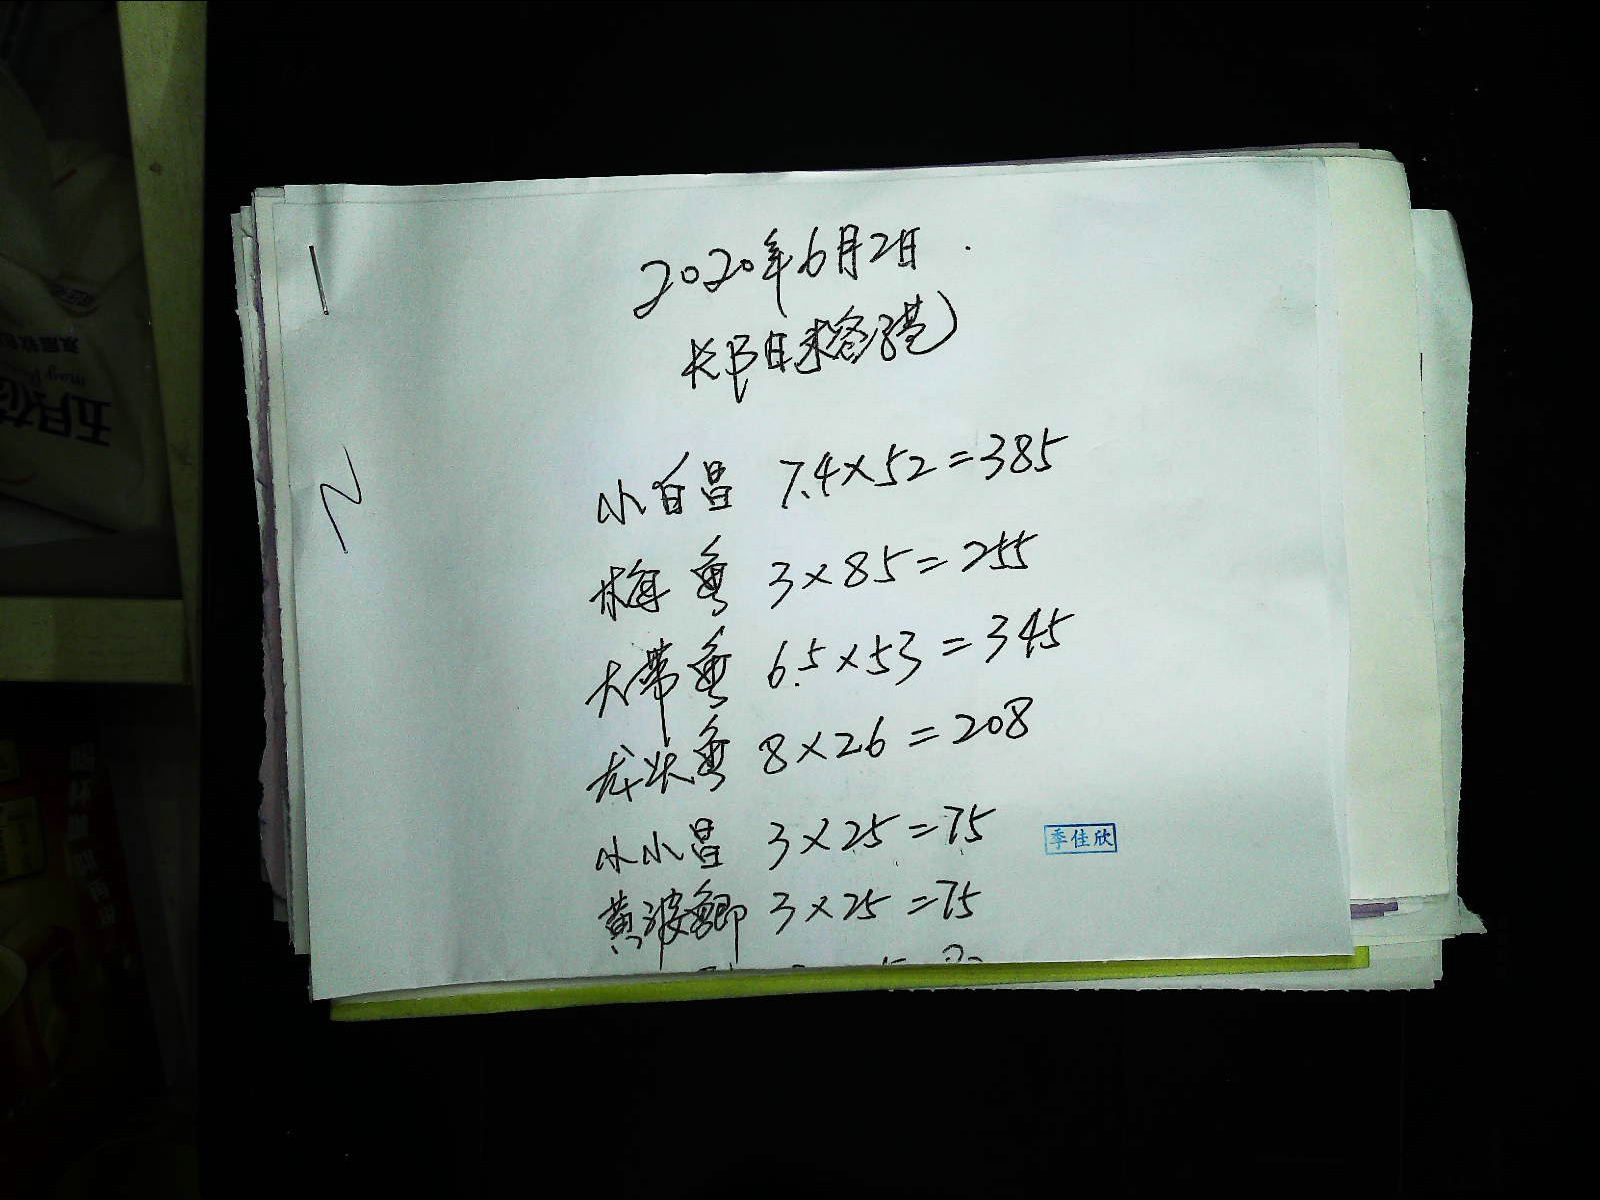 2020年6月2日
小白昌 7.4×52=385
梅鱼 3×85=255
大带鱼 6.5×53=345
龙头鱼 8×26=208
小小昌 3×25=75
季佳欣
黄波鲫 3×25=75
五月花